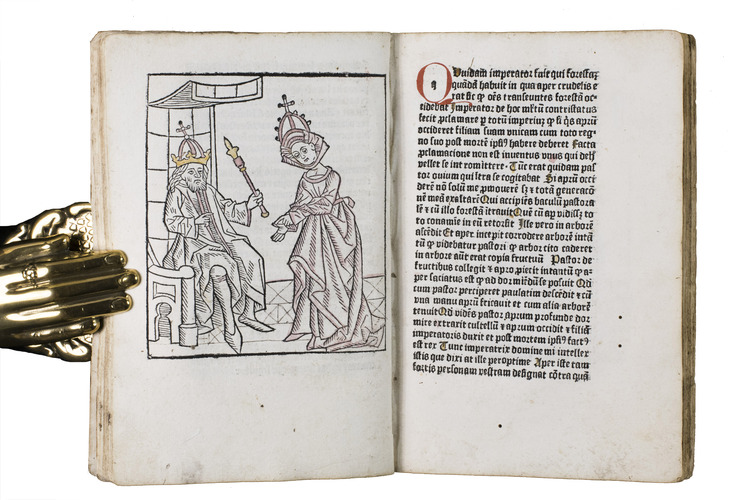 Quidam imperator fuit qui forestaȝ
quãdã habuit in qua aper crudelis e
rat sic ꝙ oẽs transeuntes forestã oc⸗
cidebat Imperator de hoc mltũ contristatus
fecit ꝓclamare ꝑ totũ imperiuȝ ꝙ si q̃s aprũ
occideret filiam suam vnicam cum toto reg⸗
no suo post mortẽ ip̃i⁹ habere deberet Facta
ꝓclamacione non est inuentus vnus qui
vellet se intromittere· Tũc erat quidam pas
tor ouium qui intra se cogitabat Si aprũ occi
derẽ nõ solũ me ꝓmouerẽ sȝ ⁊ totã generacõ
nẽ meã exaltarẽ Qui accipiẽs baculũ pastora
lẽ ⁊ cũ illo forestã ĩtrauit Quẽ cũ aꝑ vidissȝ to
to conamie in eũ retorsit Ille vero in arborẽ
ascẽdit Et aper incepit corrodere arborẽ intã
tũ ꝙ videbatur pastori ꝙ arbor cito caderet
in arbore aũt erat copia fructuũ Pastor de
fructibus collegit ⁊ apro ꝓiecit intantũ ꝙ a⸗
per saciatus est ꝙ ad dormiẽdũ se posuit Qd
cum pastor perciperet paulatim descẽdit ⁊ cũ
vna manu aprũ fricauit et cum alia arborẽ
tenuit Qd vidẽs pastor aprum profunde dor
mire extraxit cultellũ ⁊ aprum occidit ⁊ filiã
imperatoris duxit et post mortem ip̃i⁹ fact⁹
est rex Tunc imperatrix domine mi intellex
istis que dixi at ille peroptime Aper iste tam
fortis personam vestram designat cõtra quã